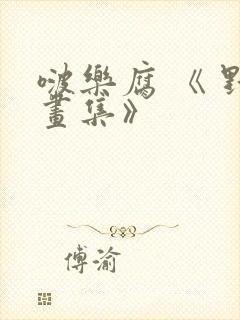 啵樂腐《野
畫集》
傅渝